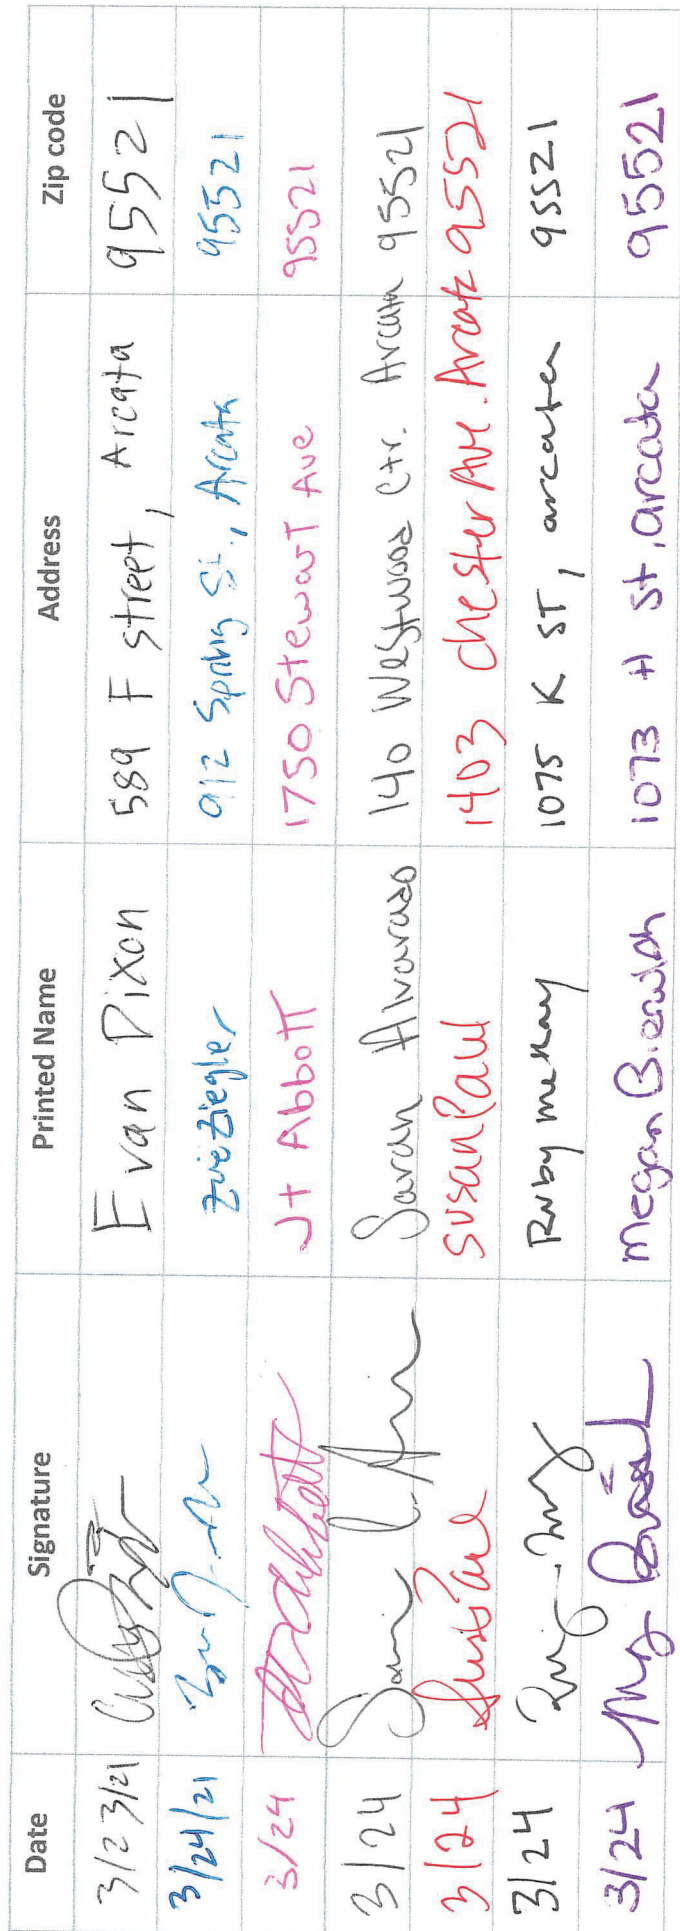 Date Signature Printed Name Address Zip code
3/23/21 Evan Dixon 589 F street, Arcata 95521
3/24/21 Zvie Ziegler 912 Spring St., Arcata 95521
3/24 Jt Abbott 1750 Stewart Ave 95521
3/24 Sarah Alvarado 140 Westwood Ctr. Arcata 95521
3/24 Susan Paul 1403 chester Ave. Arcata 95521
3/24 Ruby McKay 1075 K ST, arcata 95521
3/24 Megan 1073 H St, arcata 95521